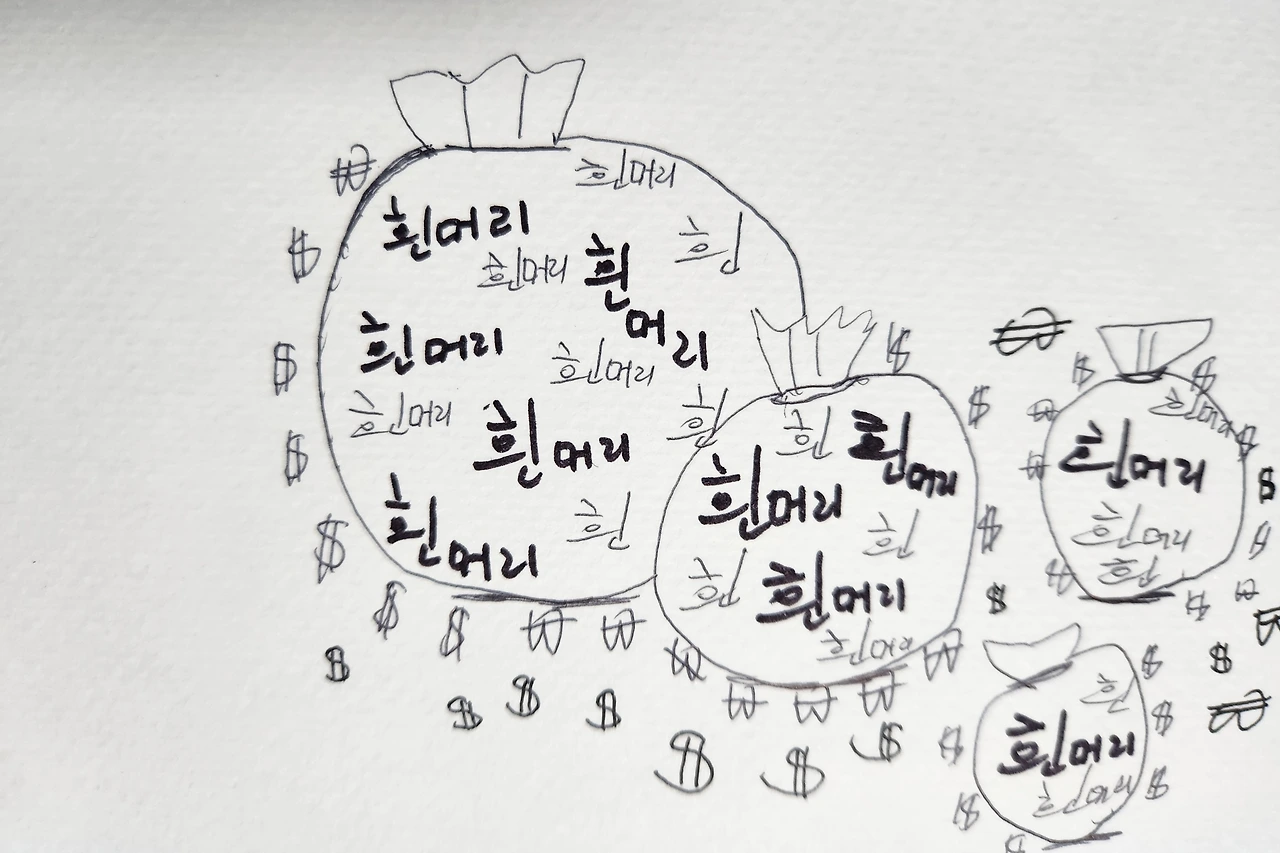 흰머리
흰머리
흰
흰머리
흰
머
리
흰머리
흰머리
흰머리
흰
흰머리
흰
흰머리
흰머리
흰
흰
흰머리
흰머리
흰
흰
흰머리
흰머리
흰머리
흰머리
흰머리
흰
흰
흰머리
흰머리
₩
$
$
$
$
$
$
₩
₩
$
$
$
$
$
$
$
₩
₩
₩
₩
₩
$
$
$
$
₩
$
$
₩
₩
$
$
₩
$
₩
₩
$
₩
$
$
$
$
$
$